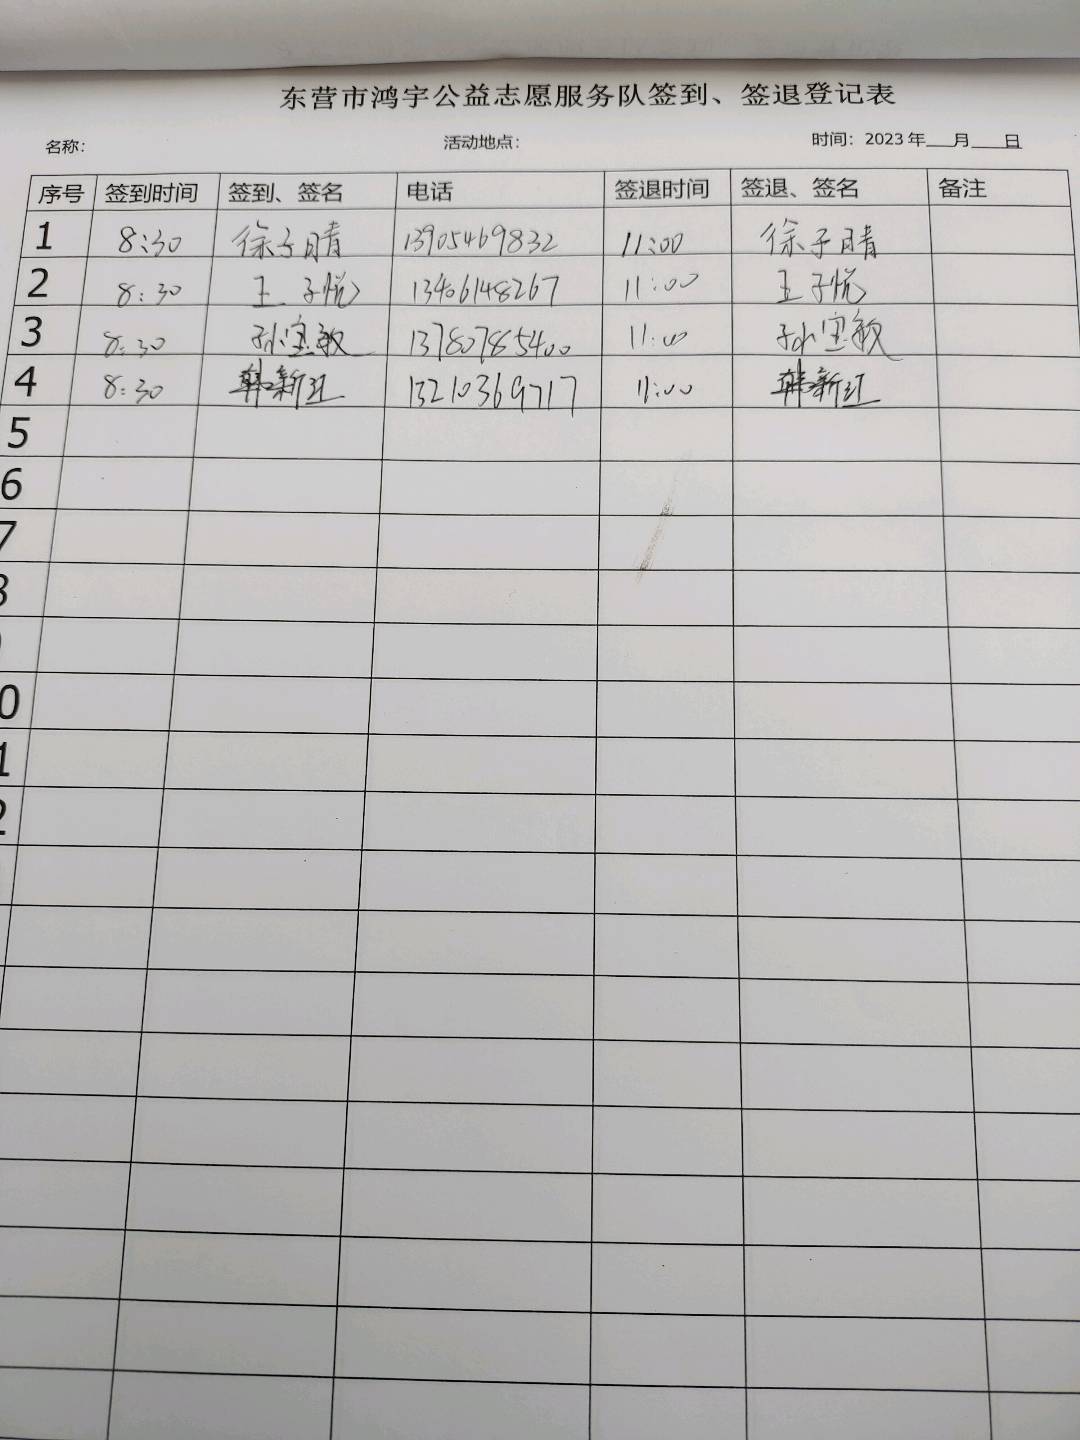 东营市鸿宇公益志愿服务队签到、签退登记表
名称： 活动地点： 时间：2023年___月___日
序号 签到时间 签到、签名 电话 签退时间 签退、签名 备注
1 8:30 徐子晴 13905469832 11:00 徐子晴
2 8:30 王子悦 13406148267 11:00 王子悦
3 8:30 孙宝敏 13780785400 11:00 孙宝敏
4 8:30 韩新红 13210369717 11:00 韩新红
5
6
7
8
0
1
2